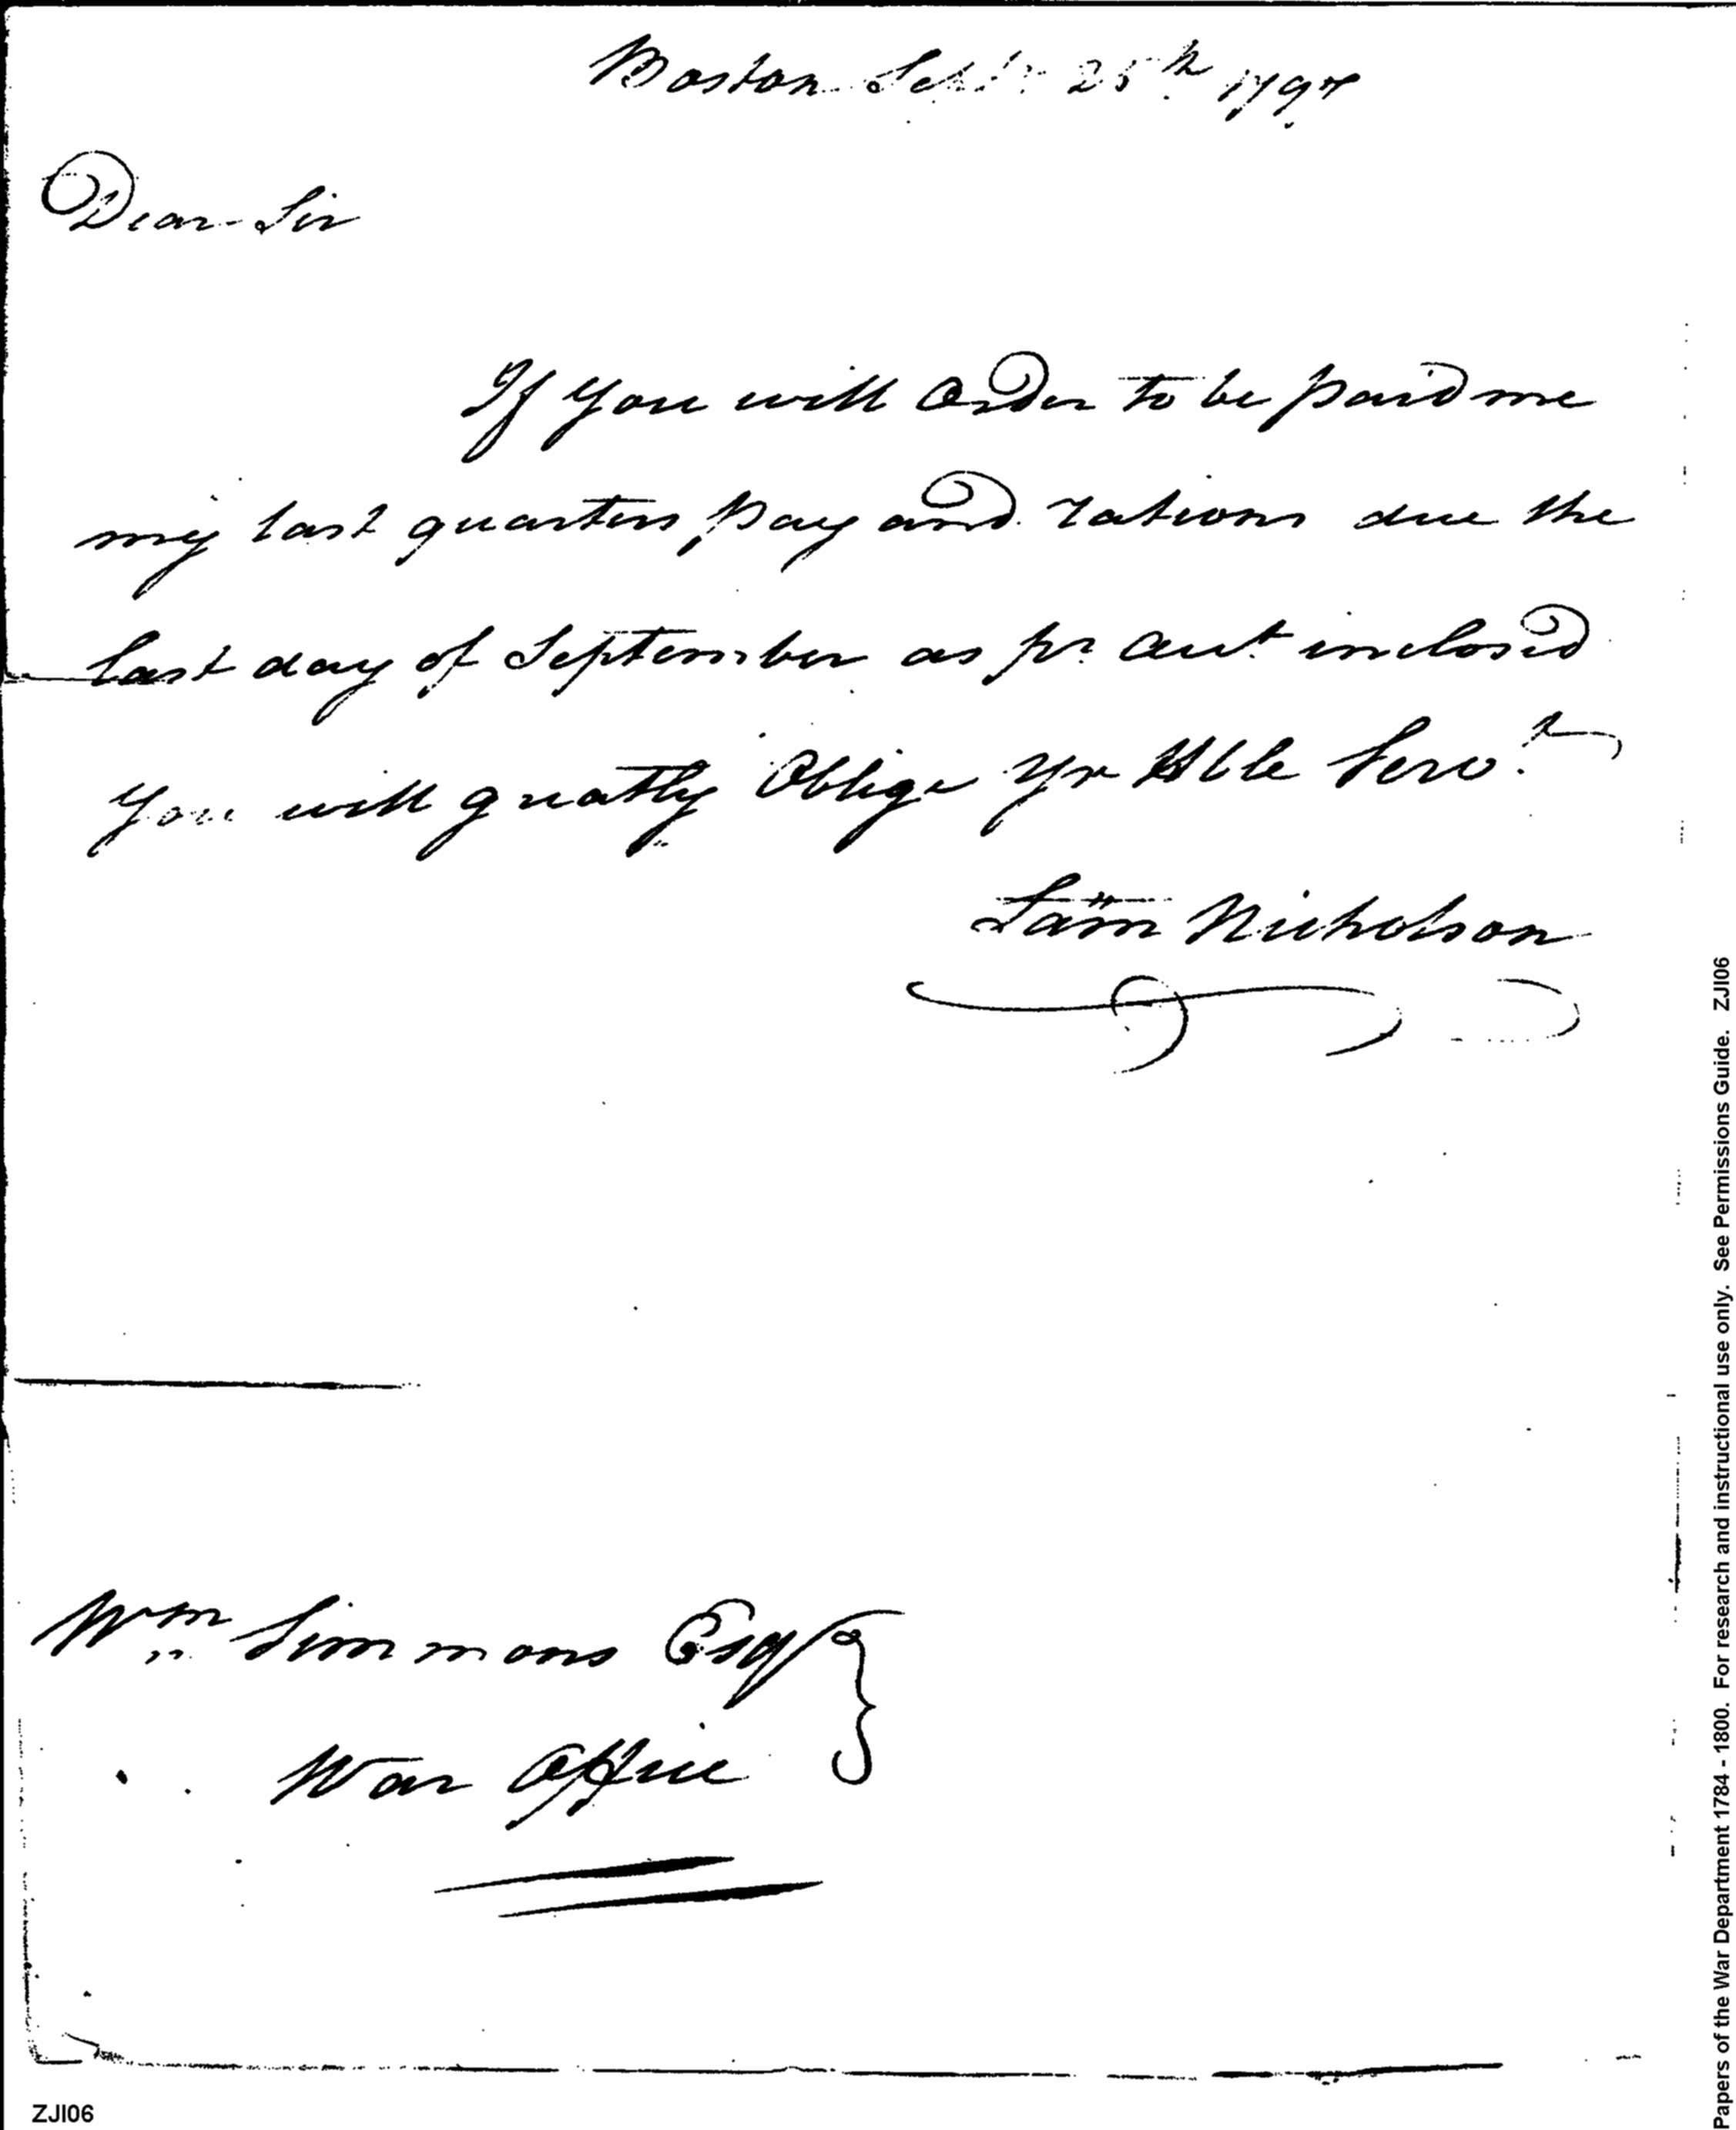 Boston Sepbr 25th 1797
Dear Sir
If you will Order to be paid me
my last quarters pay and rations due the
last day of September as pr. Acct. inclosed
you will greatly Oblige Yr Hble Servt
Sam Nicholson
Wm Simmons Esqr
War Office
ZJI06
Papers of the War Department 1784 - 1800. For research and instructional use only. See Permissions Guide. ZJI06